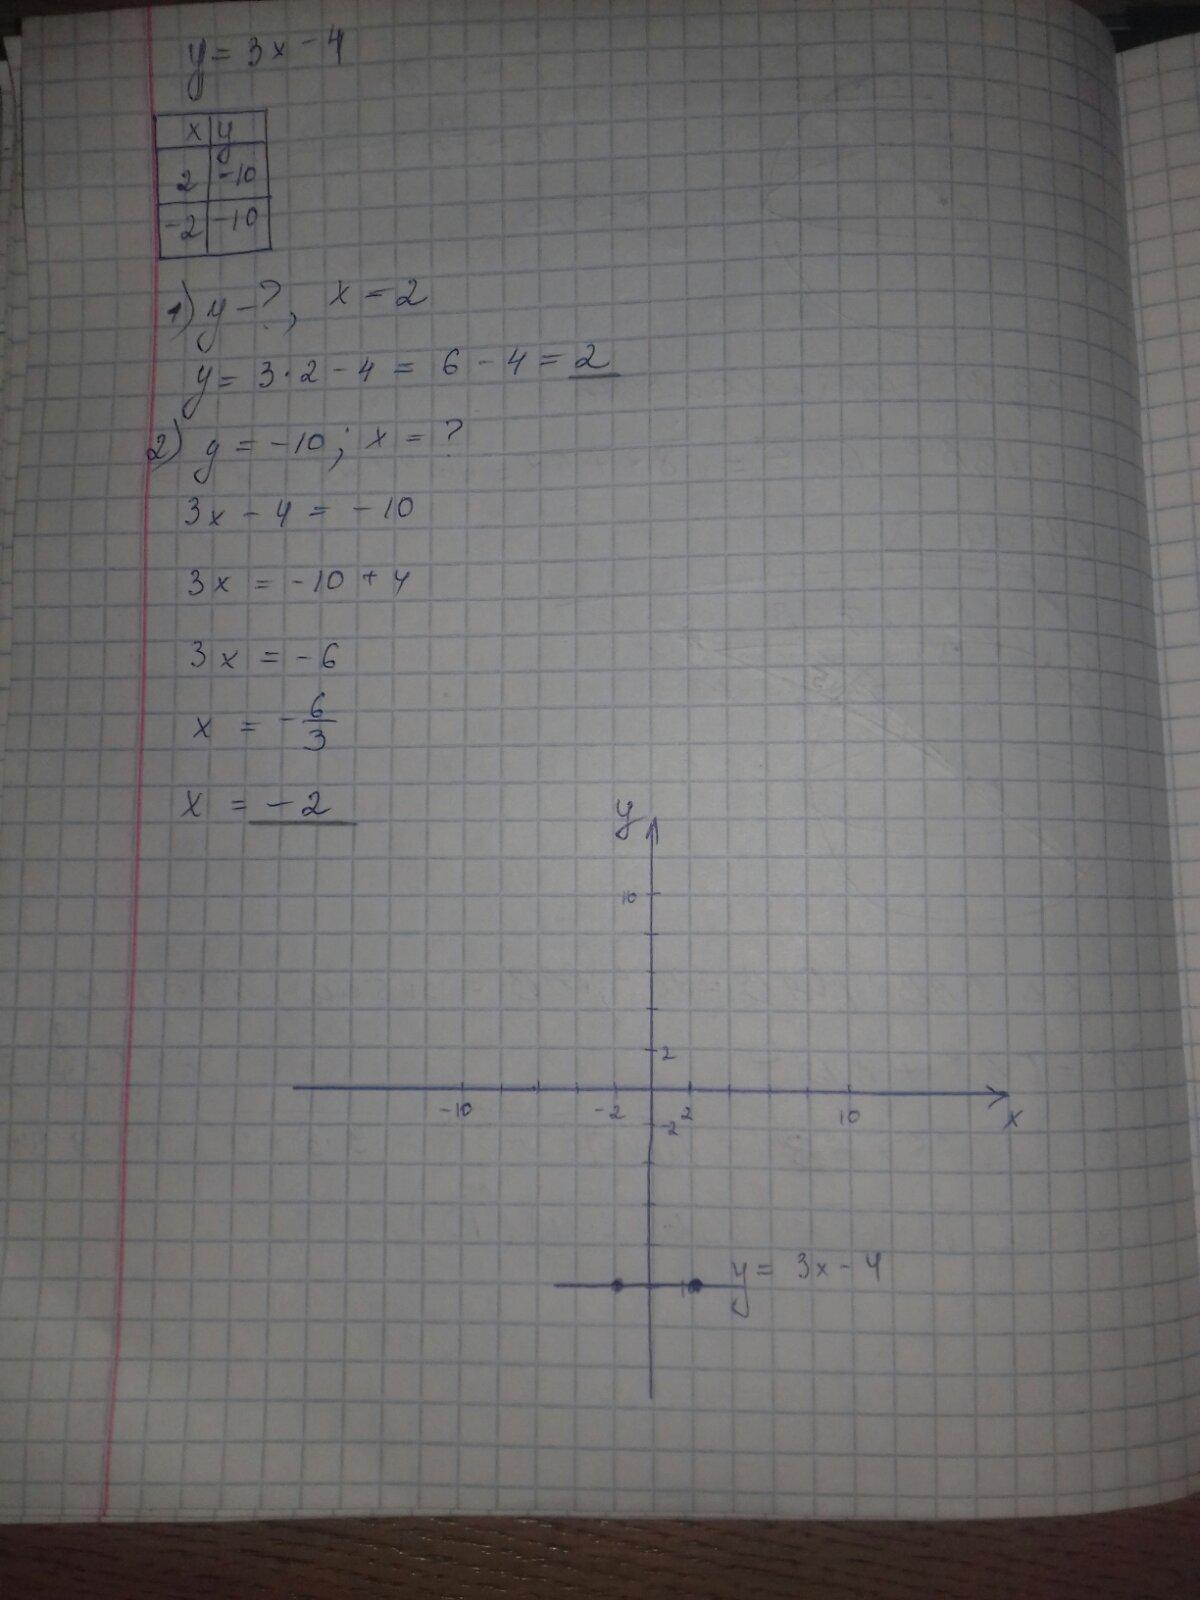 y = 3x - 4
x y
2 -10
-2 -10
1) y - ?, x = 2
y = 3 · 2 - 4 = 6 - 4 = 2
2) y = -10; x = ?
3x - 4 = -10
3x = -10 + 4
3x = -6
x = - 6/3
x = -2
y
10
2
-10 -2 2 10 x
-2
y = 3x - 4